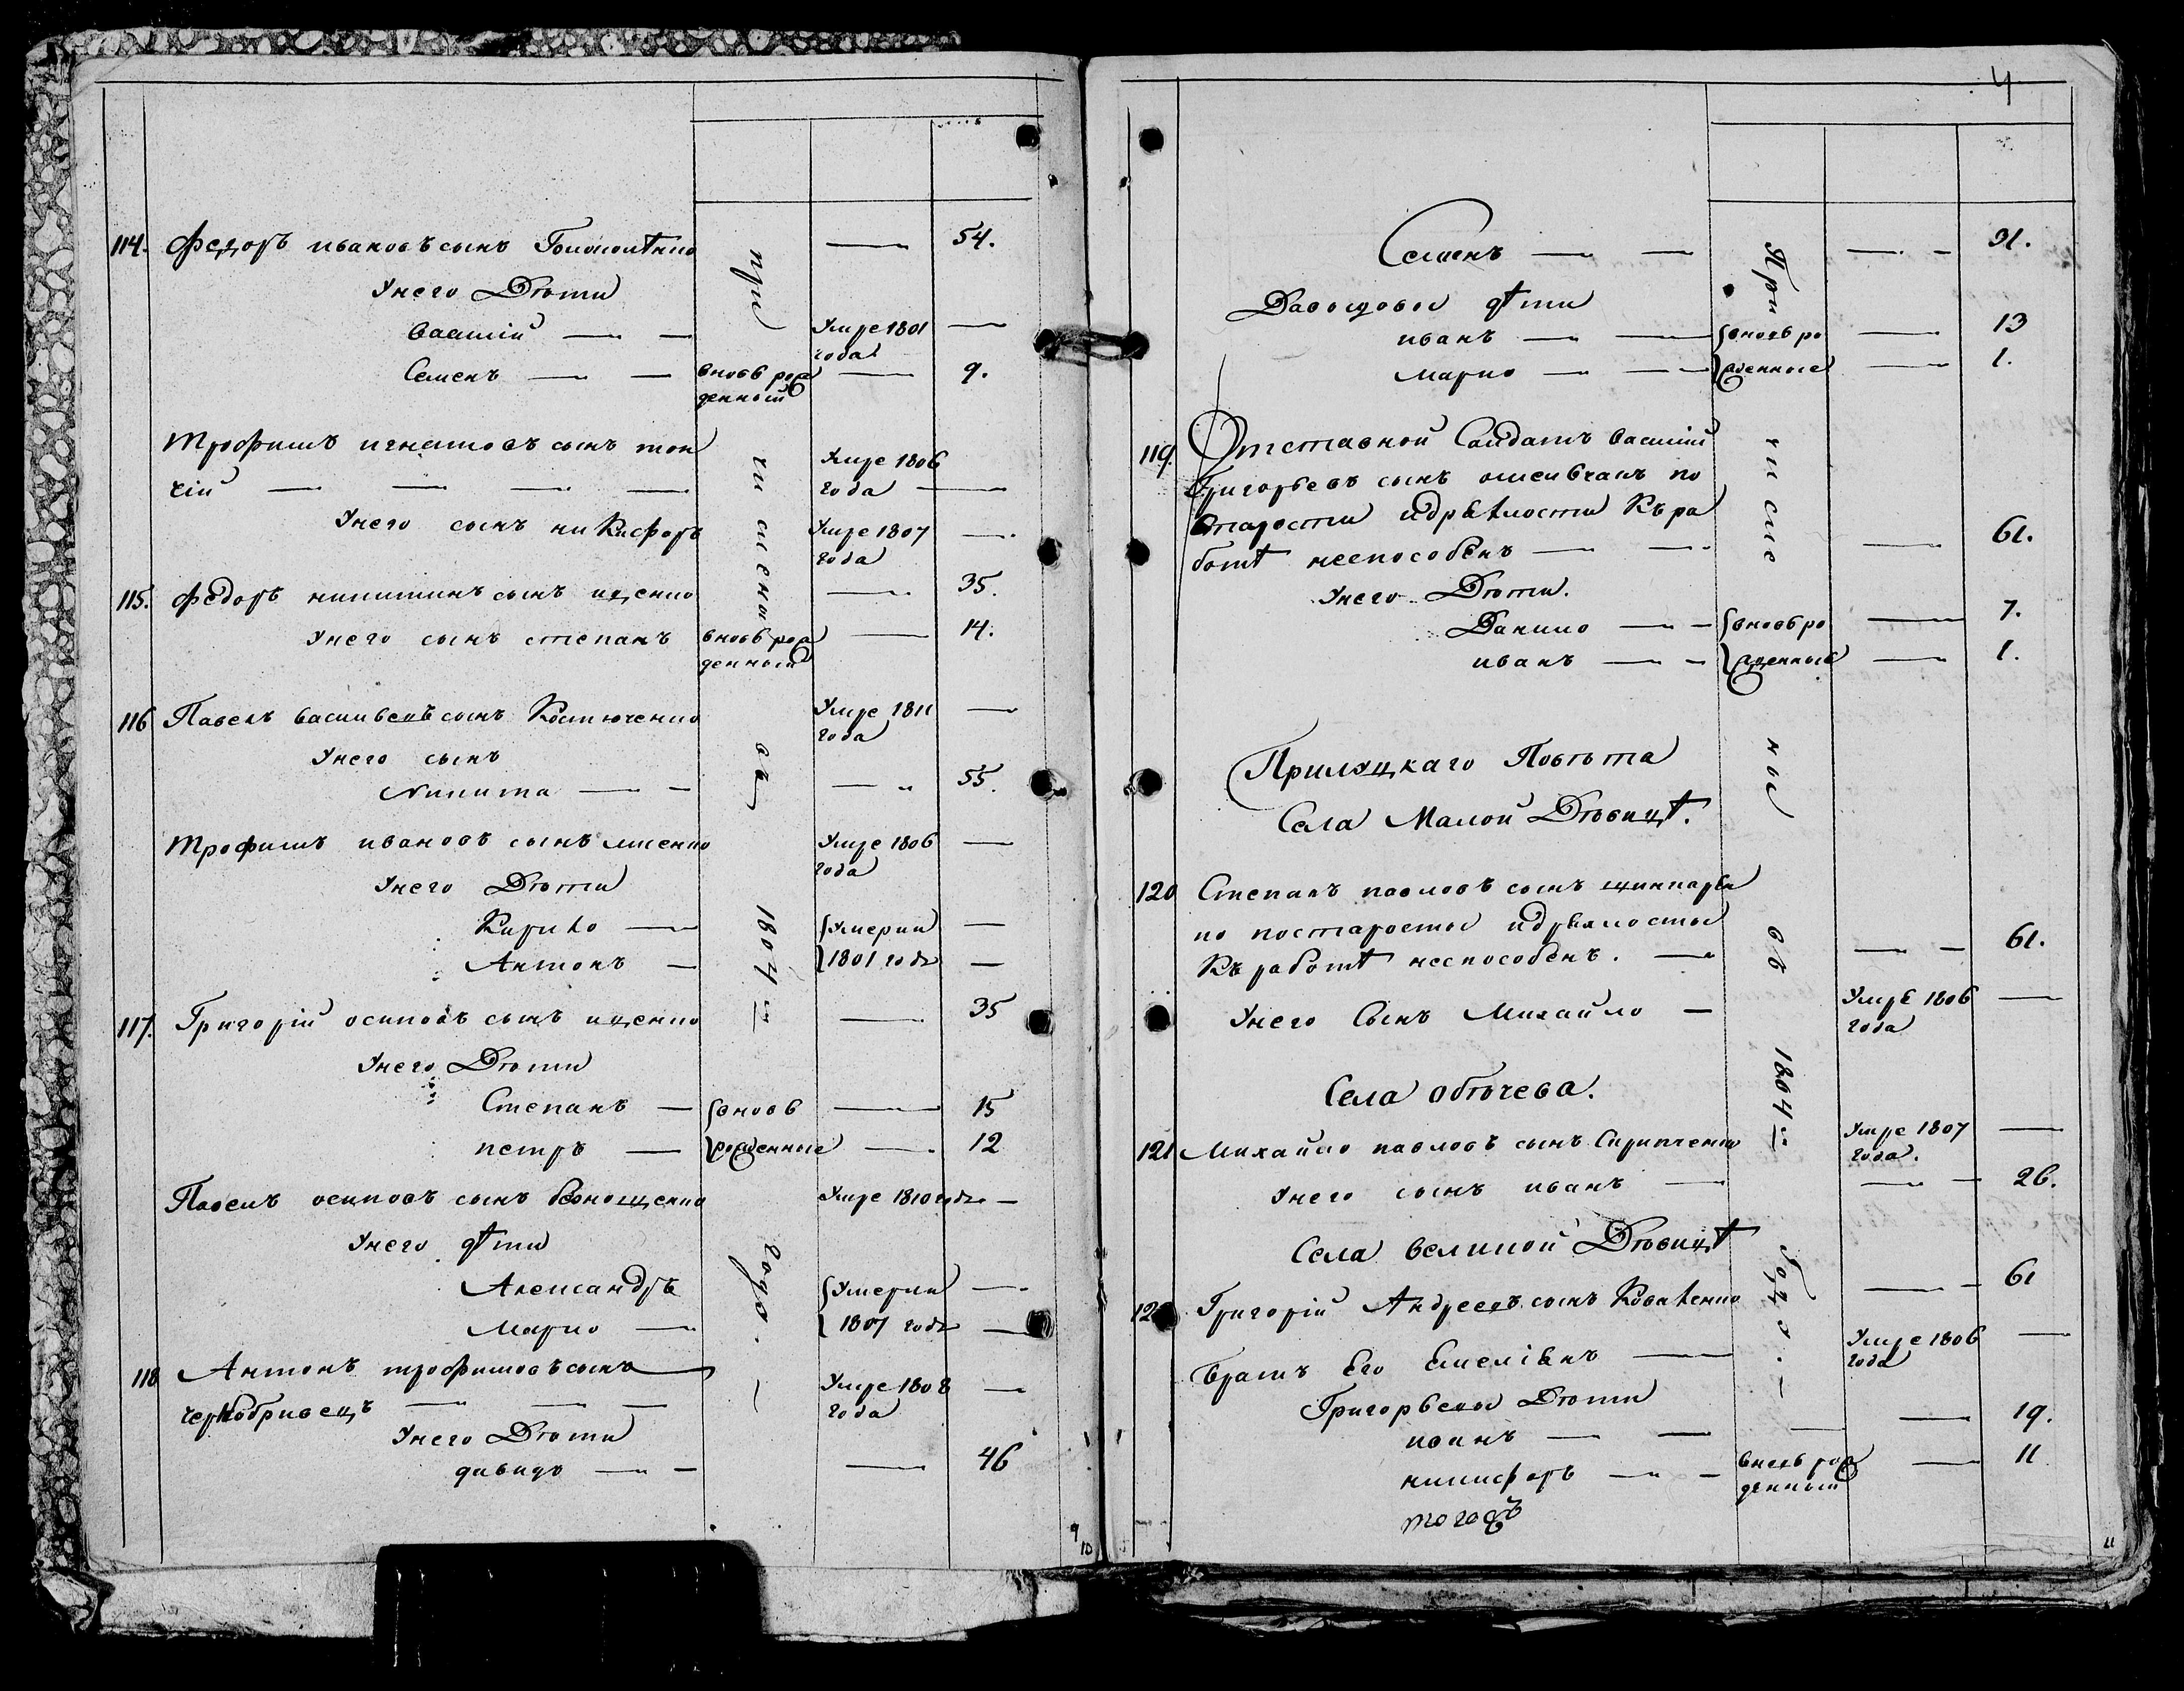 114. Федоръ ивановъ сынъ — 54.
Унего Дѣти
василій — — Умре 1801 года —
Семенъ — — вновь рож денный — 9.
трофимъ игнатовъ сынъ тон
кій — — — — Умре 1806 года —
Унего сынъ никифоръ Умре 1807 года —
115. федоръ никитинъ сынъ ищенко — 35.
Унего сынъ степанъ вновь рож денный — 14.
116 Павелъ васильевъ сынъ Костюченко Умре 1811 года —
Унего сынъ
Никита — — — 55.
трофимъ ивановъ сынъ Умре 1806 года —
Унего Дѣти
Кирило — Умерли —
Антонъ — 1801 годѣ —
117. Григорій осиповъ сынъ ищенко — 35
Унего Дѣти
Степанъ — вновь — 15
петръ — рожденные — 12
Павелъ осиповъ сынъ Умре 1810 годѣ —
Унего дѣти
Александръ Умерли —
Марко — 1807 годѣ —
118 Антонъ трофимовъ сынъ
чернобривецъ — — — Умре 1808 года —
Унего Дѣти
давидъ — — — 46
причисленъ въ 1804 м года. —
9
10
4
Семенъ — — — — 31.
Давыдовы дѣти
иванъ — — вновь ро — 13
марко — — жденные — 1.
119. Отставной Салдатъ василій
Григорьевъ сынъ по
старости идряхлости Къ ра
ботѣ неспособенъ — — — 61.
Унего Дѣти.
Данило — — вновь ро — 7.
иванъ — — жденные — 1.
Прилуцкаго Повѣта
Села Малой Дѣвицѣ.
120 Степанъ павловъ сынъ
но постаросты идряхлосты
Къ работѣ неспособенъ. — — — 61.
Унего Сынъ Михайло — Умре 1806 года —
Села обѣчева.
121 Михайло павловъ сынъ Скрипченко Умре 1807 года. —
Унего сынъ иванъ — — — 26.
Села великой Дѣвицѣ
12 Григорій Андреевъ сынъ Коваленко — — 61
братъ Его Емеліянъ — Умре 1806 года —
Григорьевы Дѣти
иванъ — — — — 19.
никифоръ — — вновь рож денный — 11
тогожъ
Причислены въ 1804 м Года. —
11